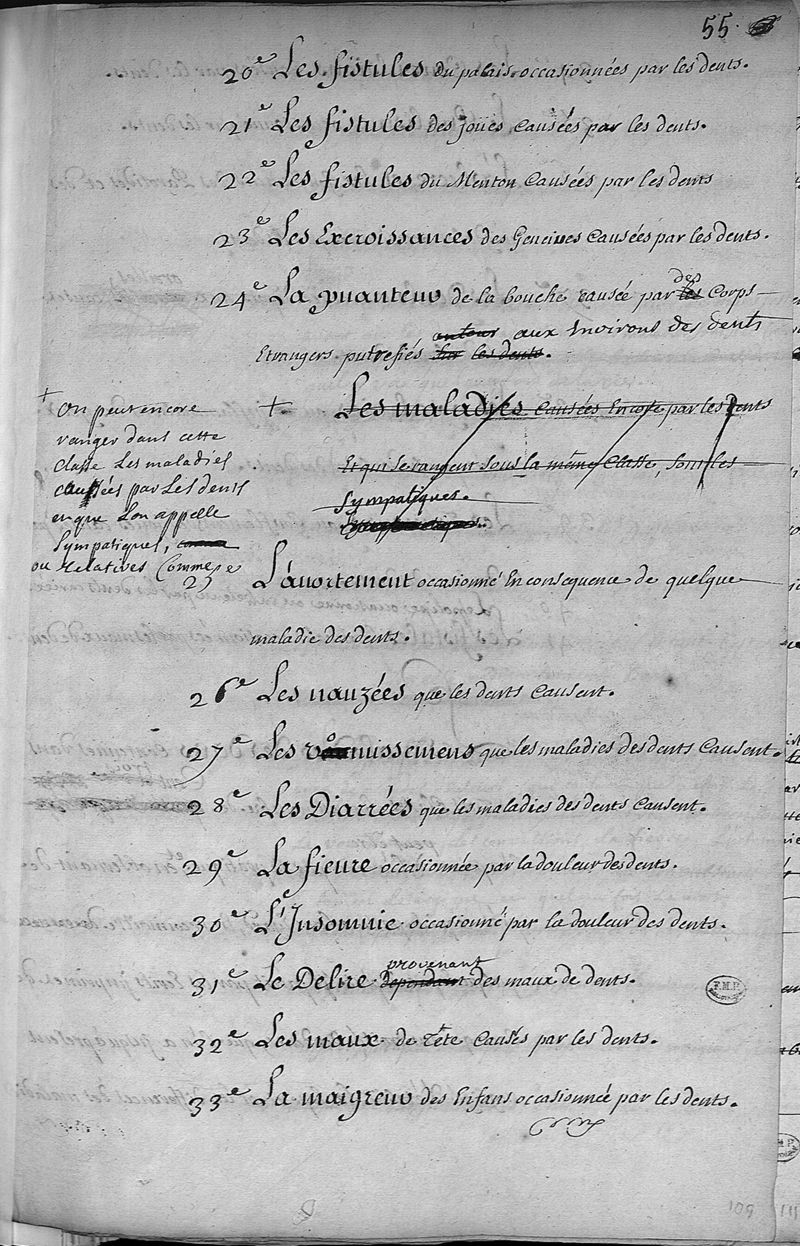 55.
20e Les fistules du palais occasionnées par les dents.
21e Les fistules des joües causées par les dents.
22e Les fistules du Menton causées par les dents
23e Les Excroissances des Gencives causées par les dents.
24e La puanteur de la bouche causée par les des Corps
autour aux Environs des dents
Etrangers putrefiés sur les dents.
+ Les maladies causées Encore par les dents
Et qui se rangent sous la même Classe, sont les
Sympatiques.
+
On peut encore
ranger dans cette
Classe Les maladies
causées par Les dents
en que Lon appelle
Sympatiques,
ou relatives Comme
25 L'avortement occasionné En consequence de quelque
maladie des dents.
26e Les nauzées que les dents causent.
27e Les vomissemens que les maladies des dents causent.
28e Les Diarrées que les maladies des dents causent.
29e La fievre occasionnée par la douleur des dents.
30e L'Insomnie occasionné par la douleur des dents.
provenant
31e Le Delire Dependant des maux de dents.
F.M.P.
32e Les maux de tête causés par les dents.
33e La maigreur des Enfans occasionnée par les dents.
109